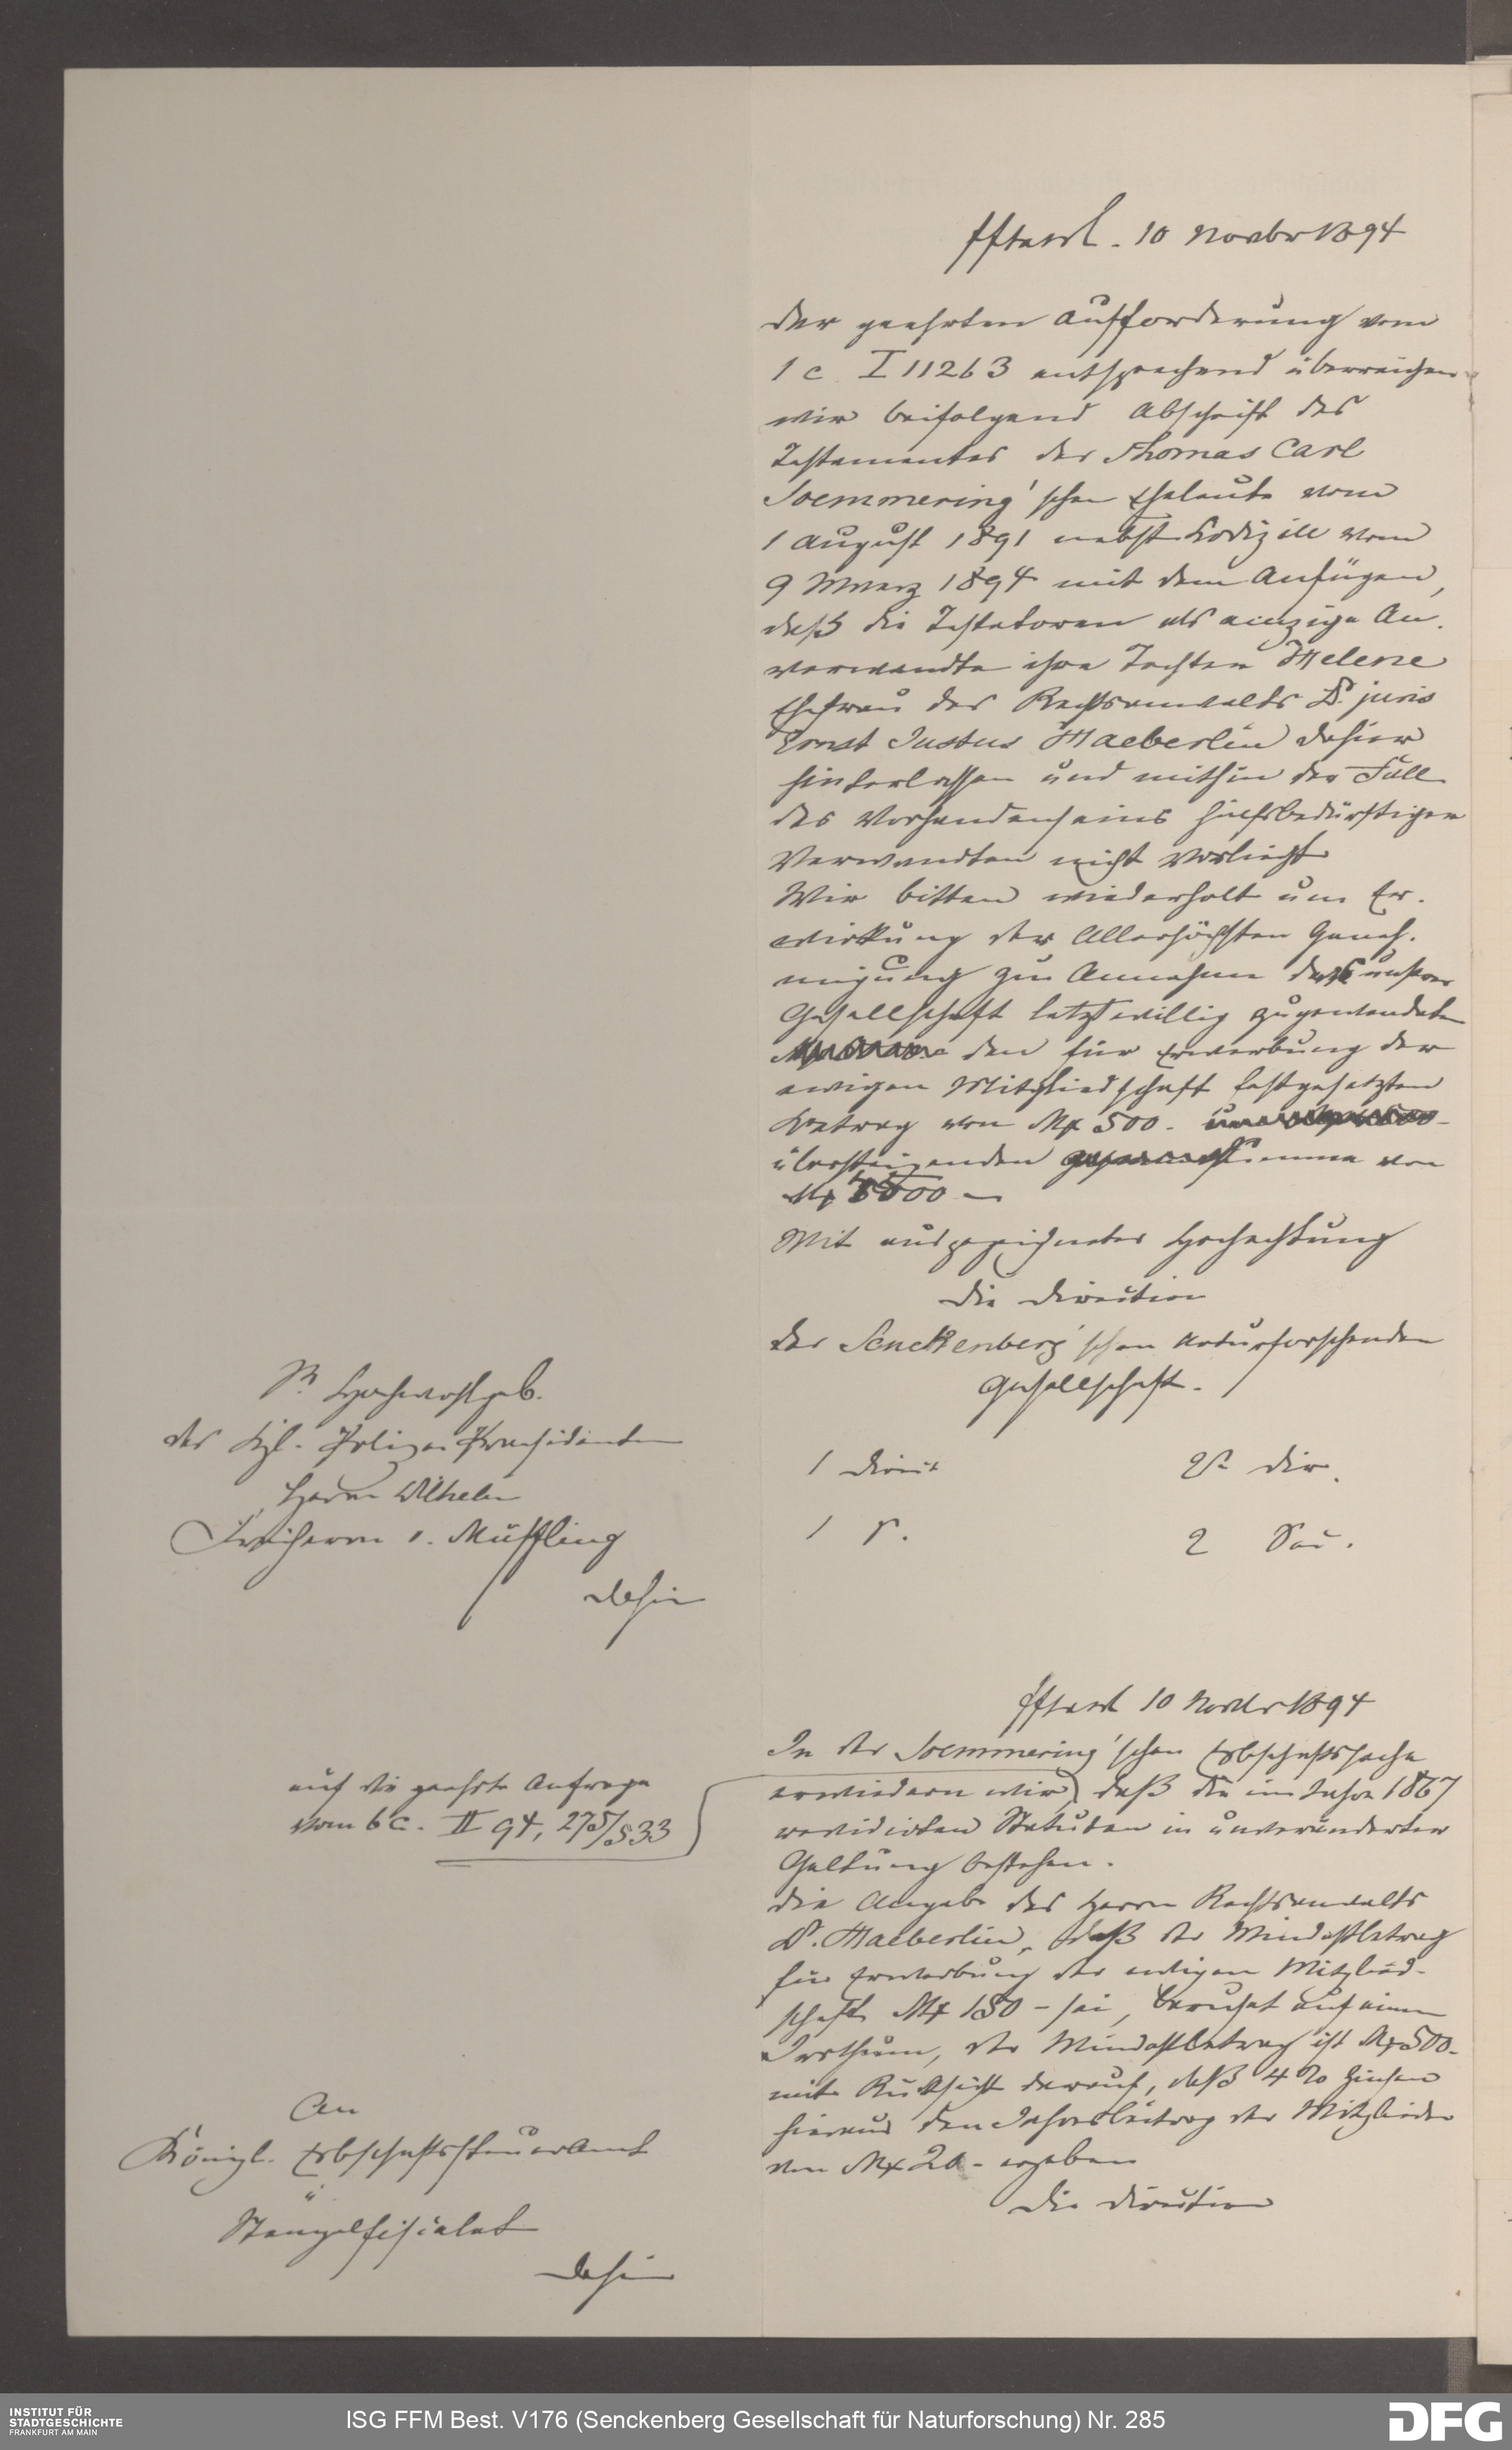 10 Novbr 1894
Der geehrten Aufforderung vom
1 c. I 11263 entsprechend überreichen
wir beifolgend Abschrift des
Testamentes der Thomas Carl
Soemmering'schen Eheleute vom
1 August 1891 nebst Kodizill vom
9 Maerz 1894 mit dem Anfügen,
daß die Testatoren als einzige An-
verwandte ihre Tochter Helene
Ehefrau des Rechtsanwalts Dr. juris
Ernst Justus Haeberlin dahier
hinterlassen und mithin der Fall
des Vorhandenseins hülfsbedürftiger
Verwandten nicht vorliegt
Wir bitten wiederholt um Er-
wirkung der Allerhöchsten Geneh-
migung zur Annahme unserer
Gesellschaft letztwillig zugewendeten
den für Erwerbung der
ewigen Mitgliedschaft festgesetzten
Betrag von Mk 500.-
übersteigenden Summe von
Mk
Mit ausgezeichneter Hochachtung
Die Direction
der Senckenberg'schen naturforschenden
Gesellschaft.
1 Direct 2r Dir.
1 S. 2 Sec.
Sr Hochwohlgeb.
des Kgl. Polizei Praesidenten
Herrn Wilhelm
Freiherrn v. Müffling
dahier
10 Novbr 1894
In der Soemmering'schen Erbschaftssache
erwiedern wir, daß die im Jahre 1867
revidirten Statuten in unveränderter
Geltung bestehen.
Die Angabe des Herrn Rechtsanwalts
Dr. Haeberlin, daß der Mindestbetrag
für Erwerbung der ewigen Mitglied-
schaft Mk 150 - sei, beruhet auf einem
Irrthum, der Mindestbetrag ist Mk 500.-
mit Rücksicht darauf, daß 4 % Zinsen
hieraus den Jahresbeitrag der Mitglieder
von Mk 20 - ergeben
Die Direction
auf die geehrte Anfrage
vom 6 c. II 94, 275/533
An
Königl. Erbschaftssteueramt
u
Stempelfiscalat
dahier
INSTITUT FÜR
STADTGESCHICHTE
FRANKFURT AM MAIN
ISG FFM Best. V176 (Senckenberg Gesellschaft für Naturforschung) Nr. 285
DFG